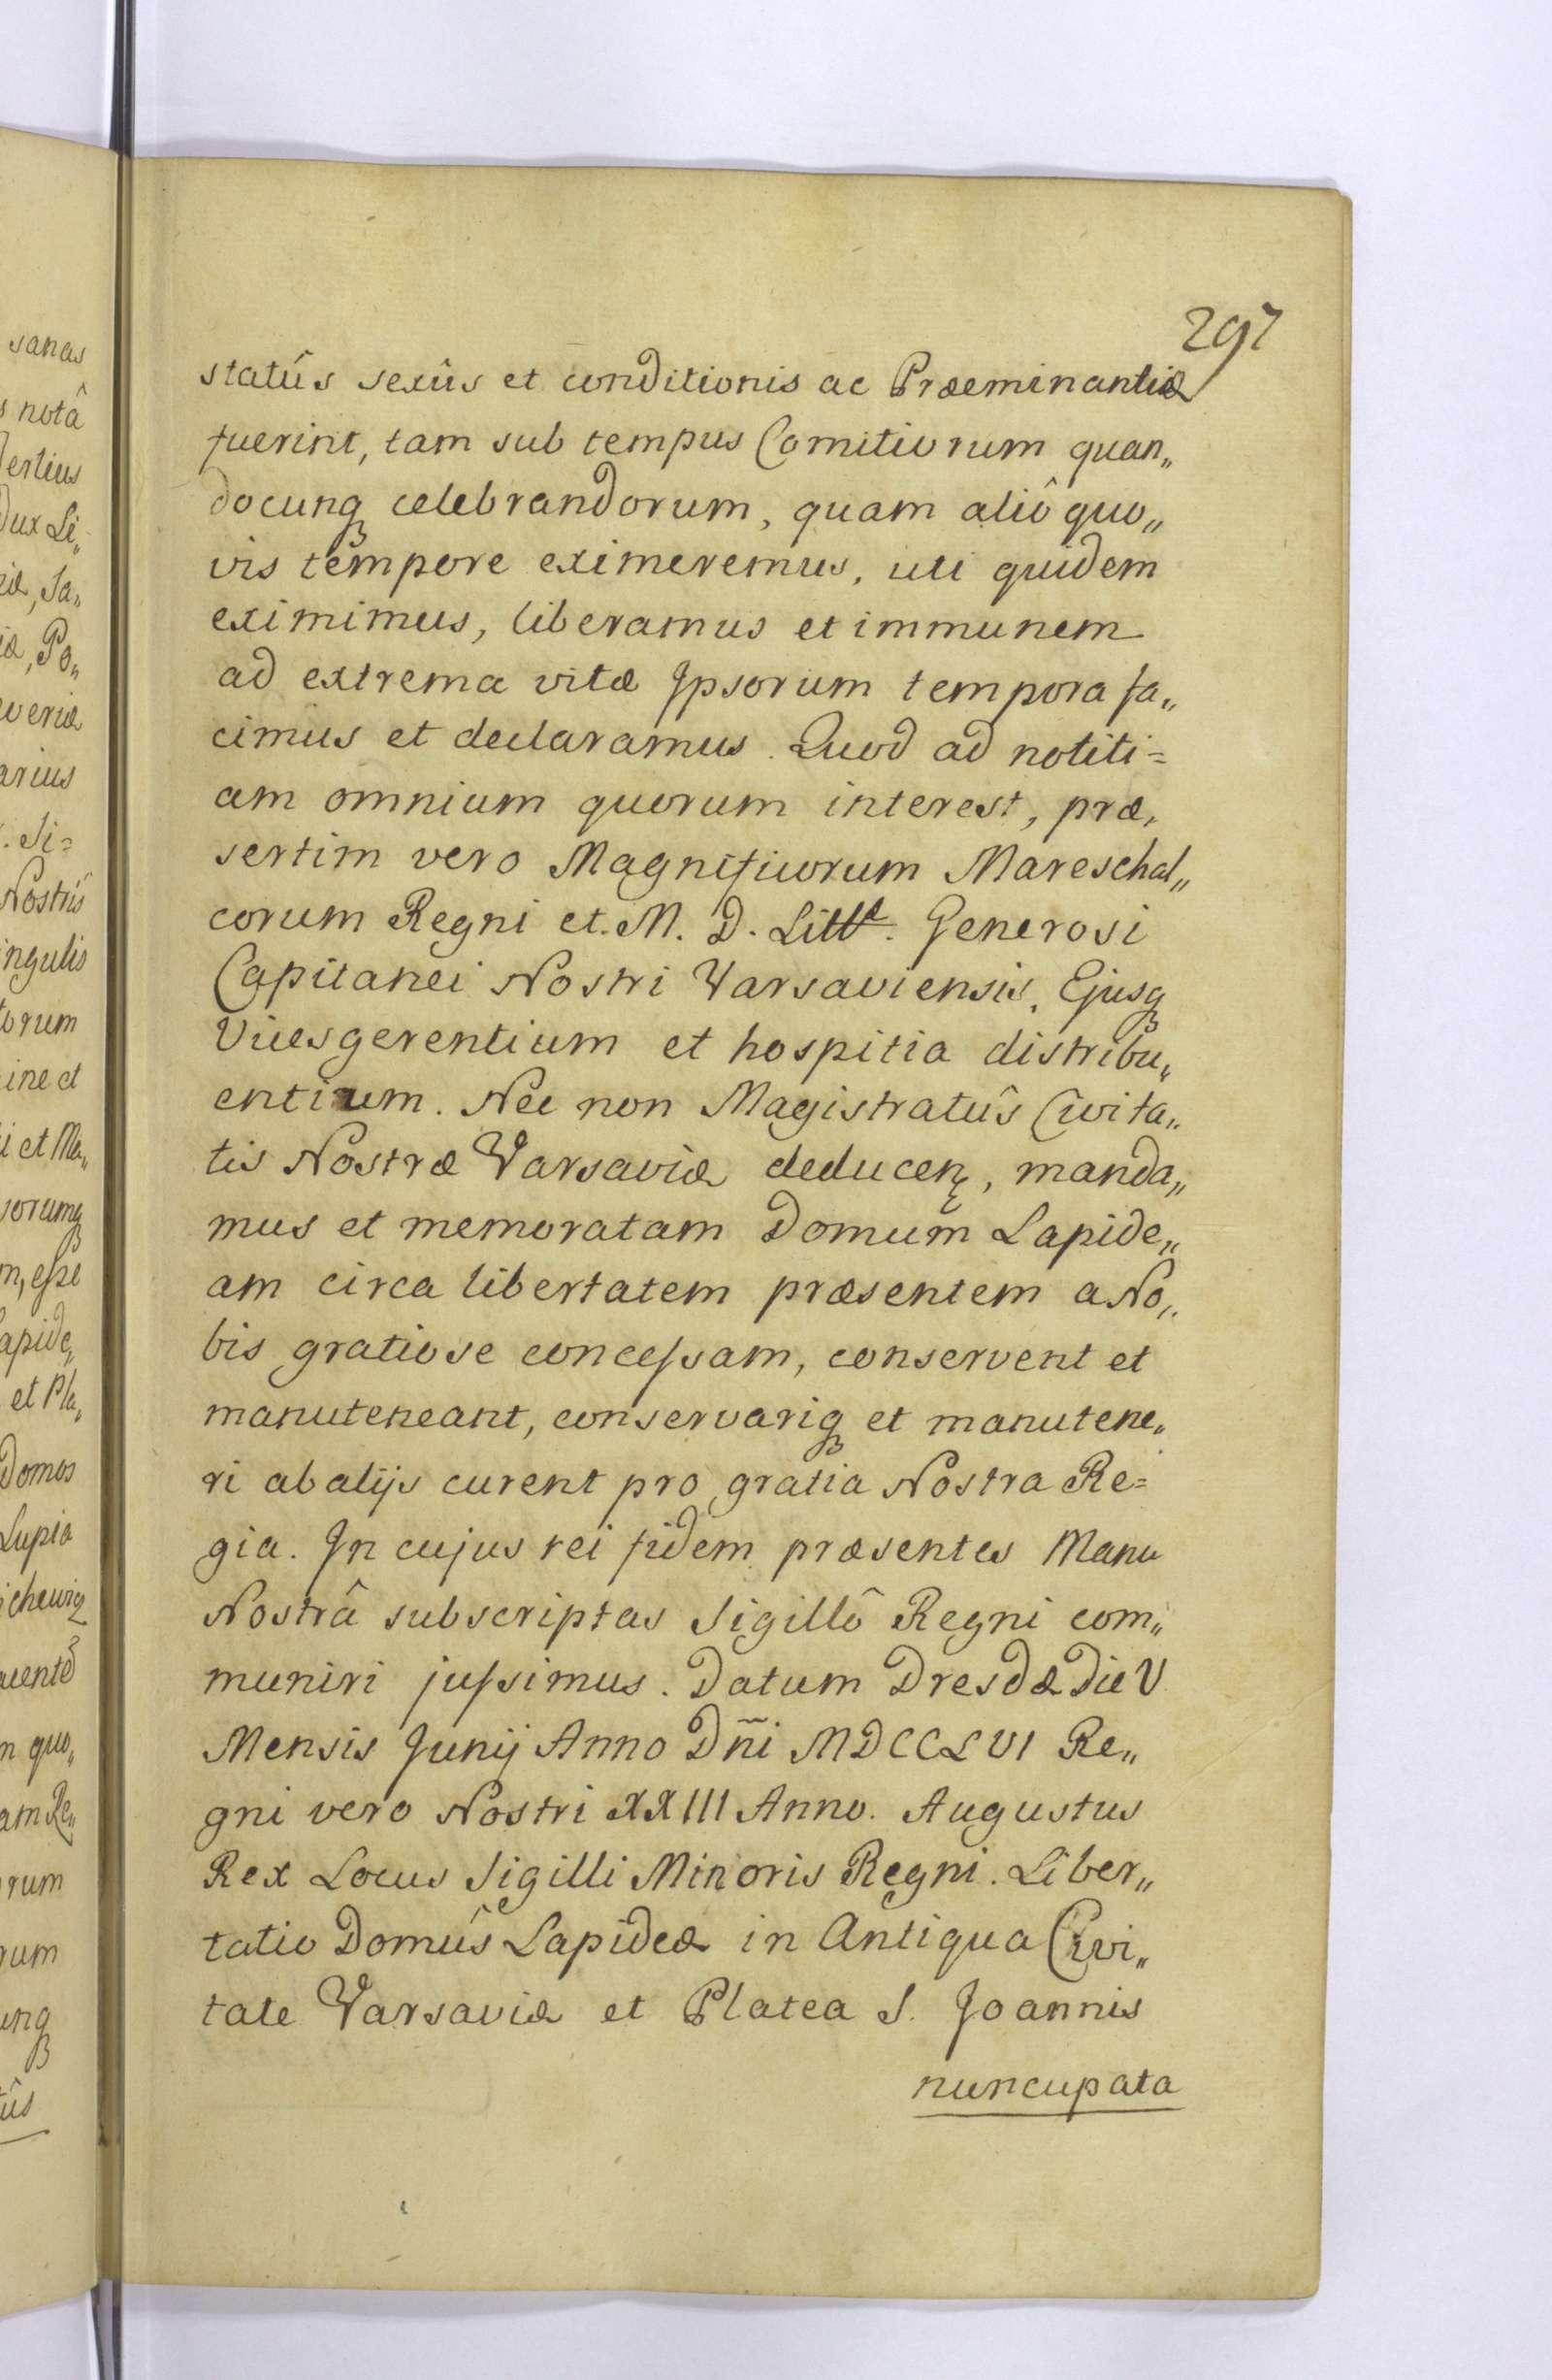 297
statûs sexûs et conditionis ac Præeminantiæ
fuerint, tam sub tempus Comitiorum quan„
docunq celebrandorum, quam aliô quo„
vis tempore eximeremus, uti quidem
eximimus, liberamus et immunem
ad extrema vitæ Ipsorum tempora fa„
cimus et declaramus. Quod ad notiti=
am omnium quorum interest, præ„
sertim vero Magnificorum Mareschal„
corum Regni et. M. D. Litt. Generosi
Capitanei Nostri Varsaviensis, Ejusq
Vicesgerentium et hospitia distribu„
entium. Nec non Magistratûs Civita„
tis Nostræ Varsaviæ deducen, manda„
mus et memoratam Domum Lapide„
am circa libertatem præsentem a No„
bis gratiose concessam, conservent et
manuteneant, conservariq et manutene„
ri ab alijs curent pro gratia Nostra Re=
gia. In cujus rei fidem præsentes Manu
Nostrâ subscriptas Sigillô Regni com„
muniri jussimus. Datum Dresdæ Die V
Mensis Junij Anno Dñi MDCCLVI Re„
gni vero Nostri XXIII Anno. Augustus
Rex Locus Sigilli Minoris Regni. Liber„
tatio Domûs Lapideæ in Antiqua Civi„
tate Varsaviæ et Platea S. Joannis
nuncupata
sanas
s notâ
ertius
Dux Li„
iæ, Sa„
iæ, Po„
veriæ
arius
. Si=
Nostris
ingulis
torum
ine et
i et Ma„
sorumq
m, esse
apide„
et Pla„
Domos
Lupia
n quo„
am Re„
rum
rum
unq
ûs